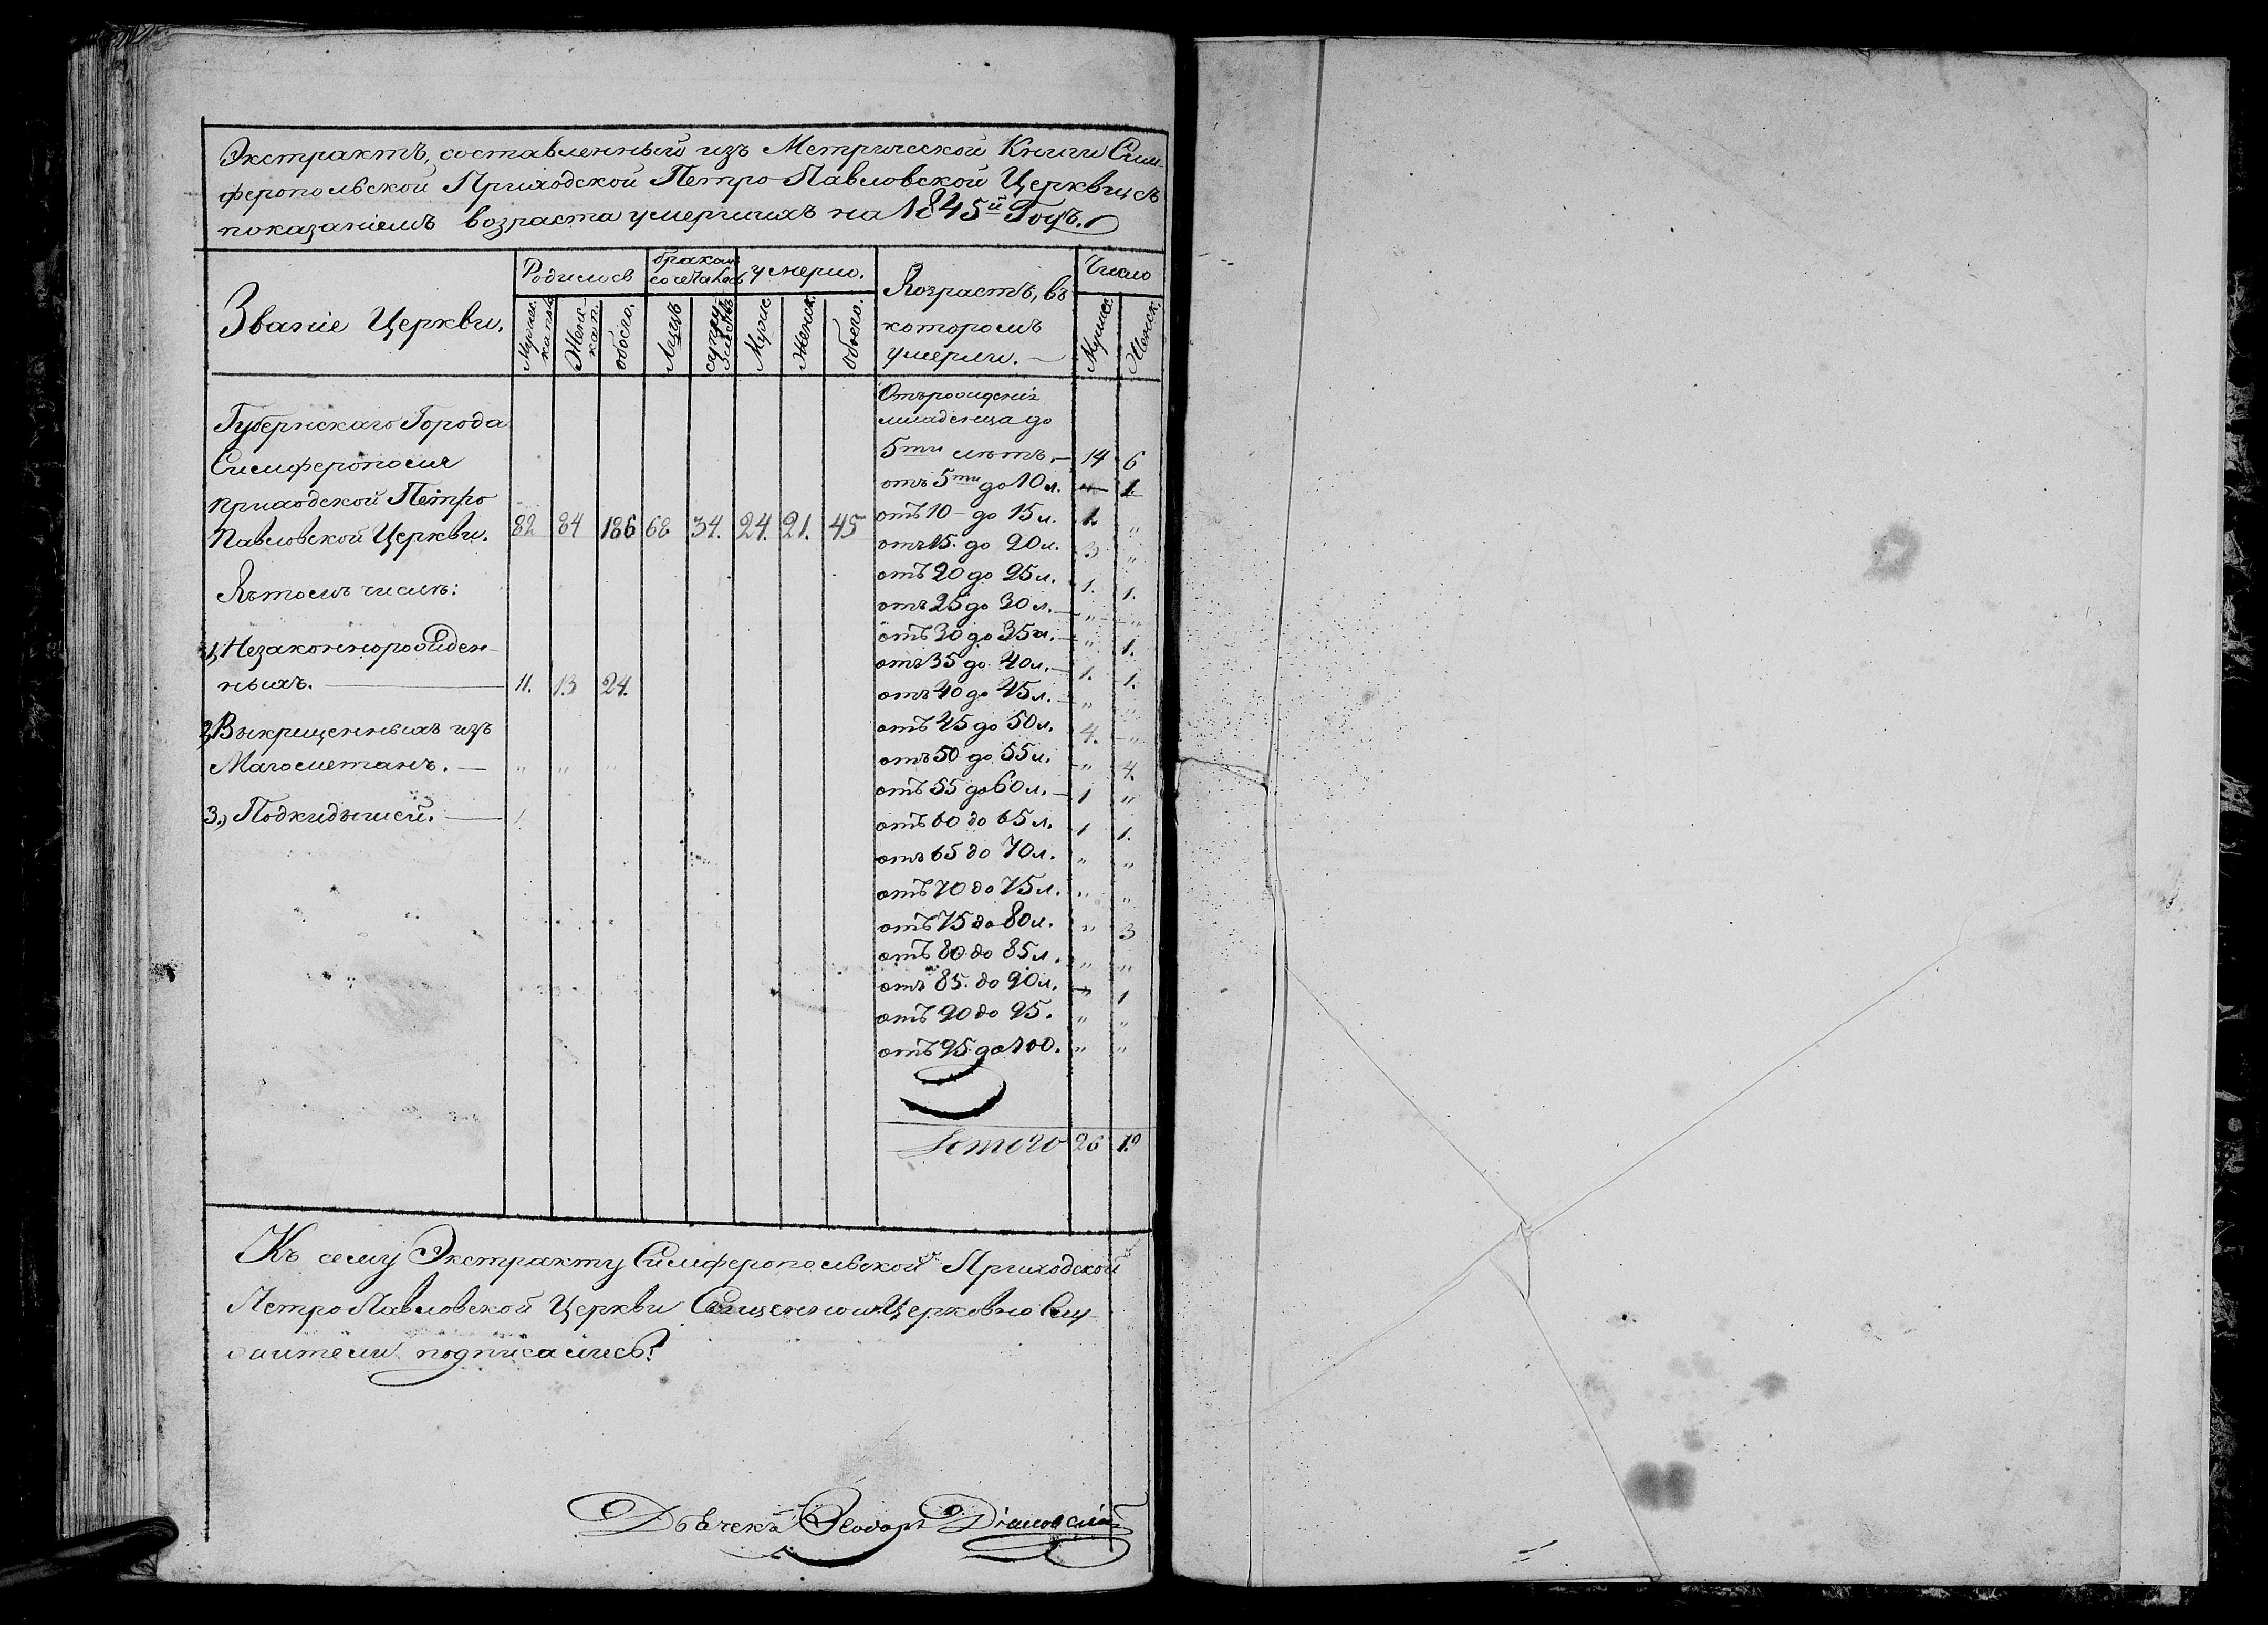 Экстрактъ, составленный изъ Метрической Книги Сим-
феропольской Приходской Петро Павловской Церкви, съ
показаніемъ возраста умершихъ на 1845й Годъ.
Званіе Церкви.
Родилось
бракомъ сочеталось
умерло.
Возрастъ, въ
которомъ
умерли. —
Число
Мужес.
ка пола
Женс-
ка п.
обоего.
Лицъ
супру-
Мужс.
Женск.
Обоего.
Мужеск.
Женск.
Губернскаго Города
Симферополя
Приходской Петро
Павловской Церкви. 82 84 186 68 34. 24. 21. 45
Въ томъ числѣ:
1, Незаконнорожден-
ныхъ. — 11. 13 24.
2, Выкрещенныхъ изъ
Магометанъ. — " " "
3., Подкидышей. — 1.
Отъ рожденія
младенца до
5ти лѣтъ. — 14 6
отъ 5ти до 10 л. " 1.
отъ 10 – до 15 л. 1. "
отъ 15. до 20 л. 3 "
отъ 20 до 25 л. 1. 1.
отъ 25 до 30 л. — " "
отъ 30 до 35 л. — " 1.
отъ 35 до 40 л. — 1. 1.
отъ 40 до 45 л. — " "
отъ 45 до 50 л. 4. "
отъ 50 до 55 л. " 4.
отъ 55 до 60 л. — 1 "
отъ 60 до 65 л. 1 1.
отъ 65 до 70 л. " "
отъ 70 до 75 л. " "
отъ 75 до 80 л. " 3
отъ 80 до 85 л. " "
отъ 85. до 90 л. " 1
отъ 90 до 95. " "
отъ 95 до 100. " "
Итого 26 19
Къ сему Экстракту Симферопольской Приходской
Петро Павловской Церкви Священно и Церковно Слу-
жители подписались:
Дьячекъ Ѳеодоръ